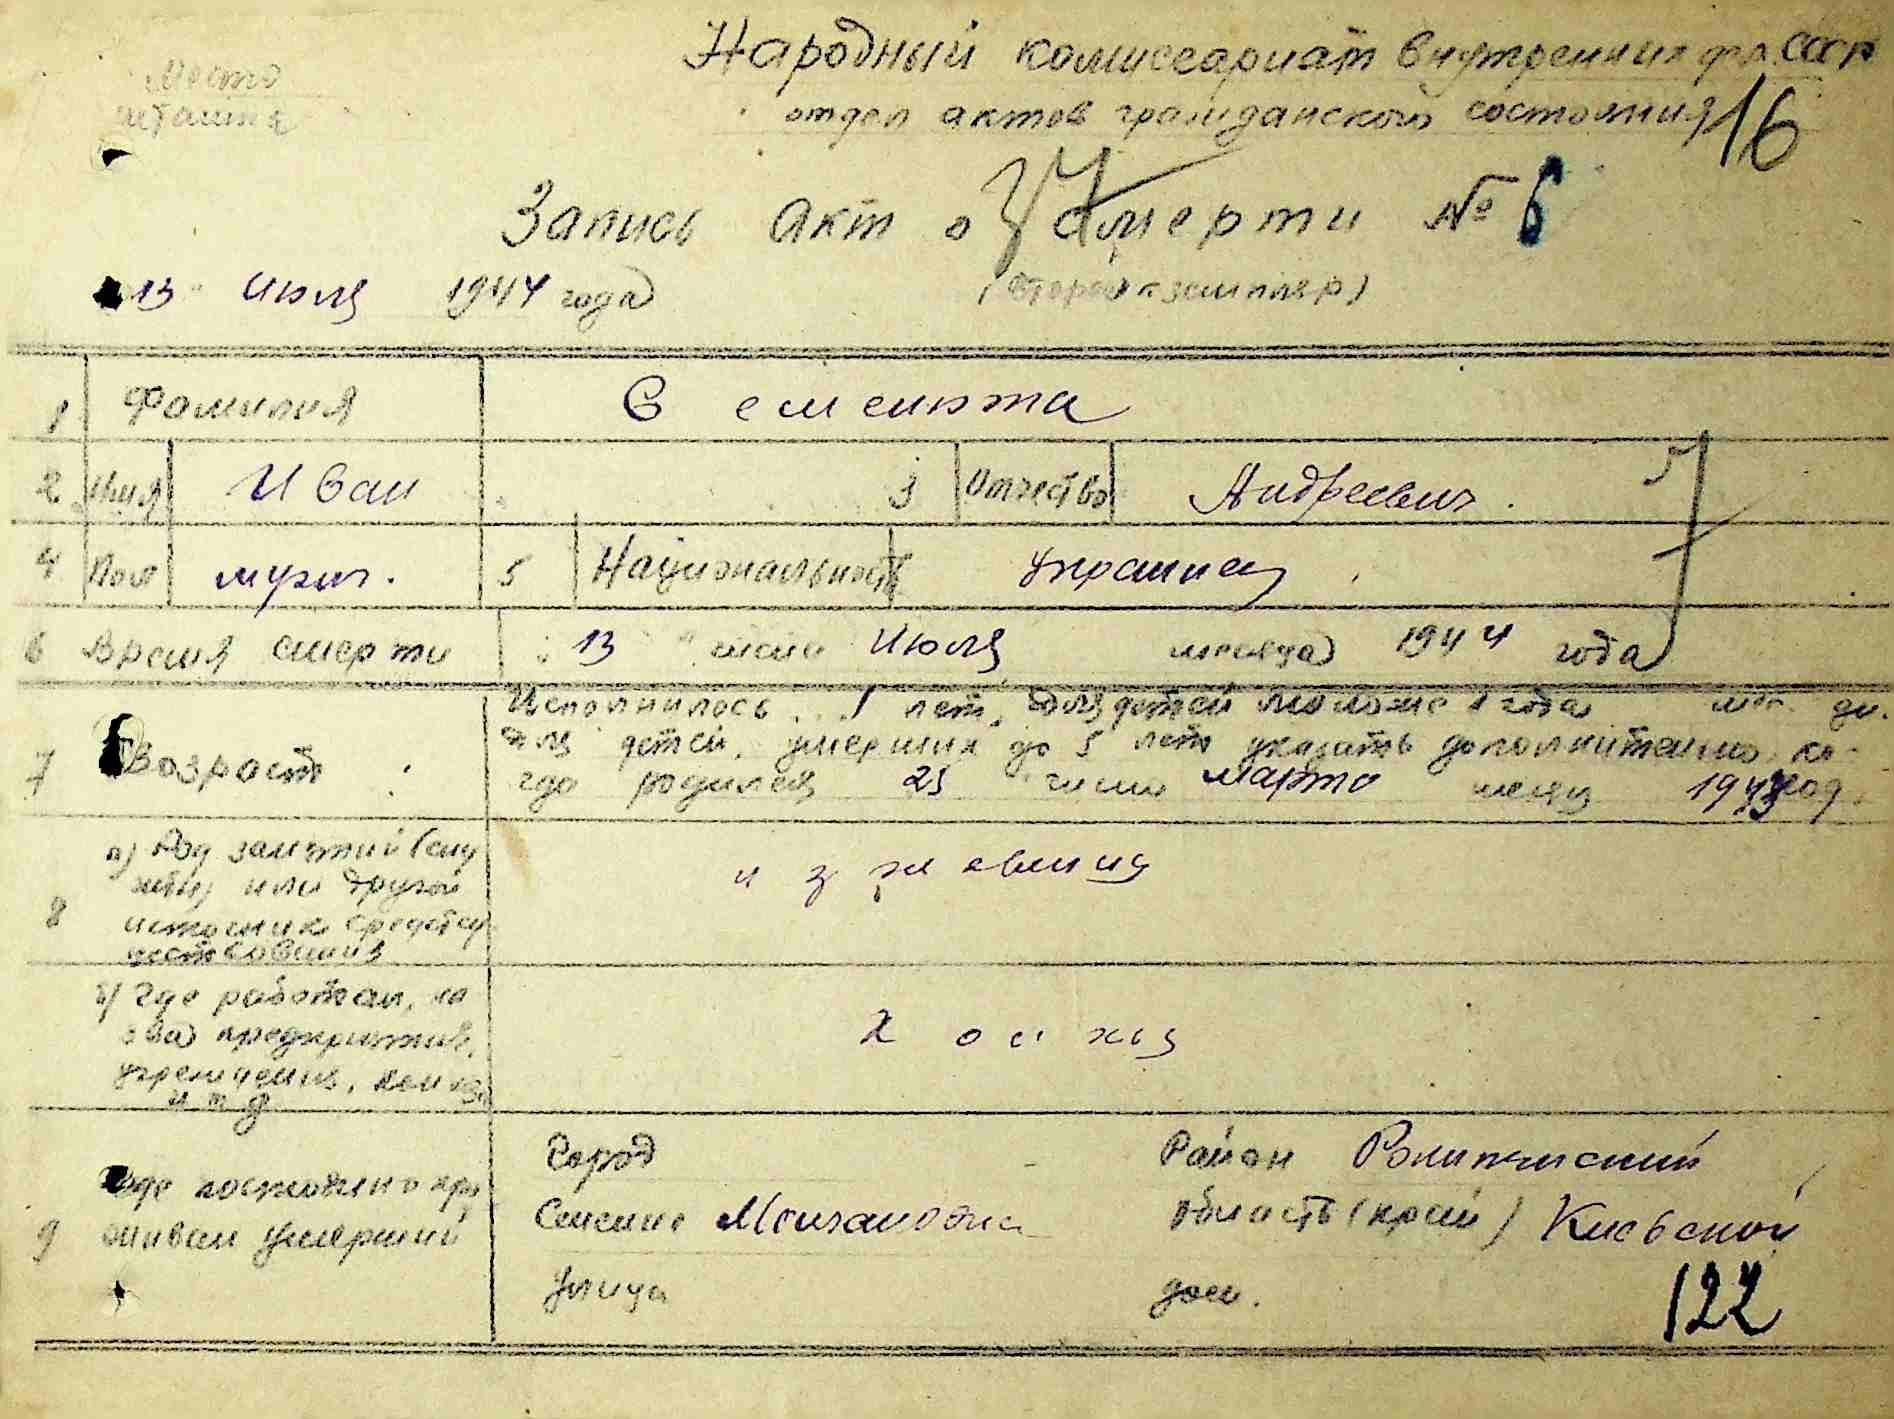 Место
штампа
Народный комиссариат внутренних дел СССР
отдел актов гражданского состояния
16
Запись акт о смерти № 6
13 Июля 1944 года
(второй экземпляр)
1 Фамилия Семенюта
2 Имя Иван 3 Отчество Андреевич.
4 Пол муж. 5 Национальность украинец
6 Время смерти 13 числа Июля месяца 1944 года
Исполнилось 1 лет, для детей моложе 1 года мес. дн.
7 Возраст для детей, умерших до 5 лет указать дополнительно, ко-
гда родился 25 число марта месяц 1943 год.
8 а) Род занятий (слу
жбы) или другой
источник средств су
ществования
иждивенец
б) Где работал, на
зва предприятия,
учреждения, колхоз
и т д
Колхоз
9 Где постоянно про
живал умерший
Город Район
Селение область (край) Киевской
Улица дом.
122